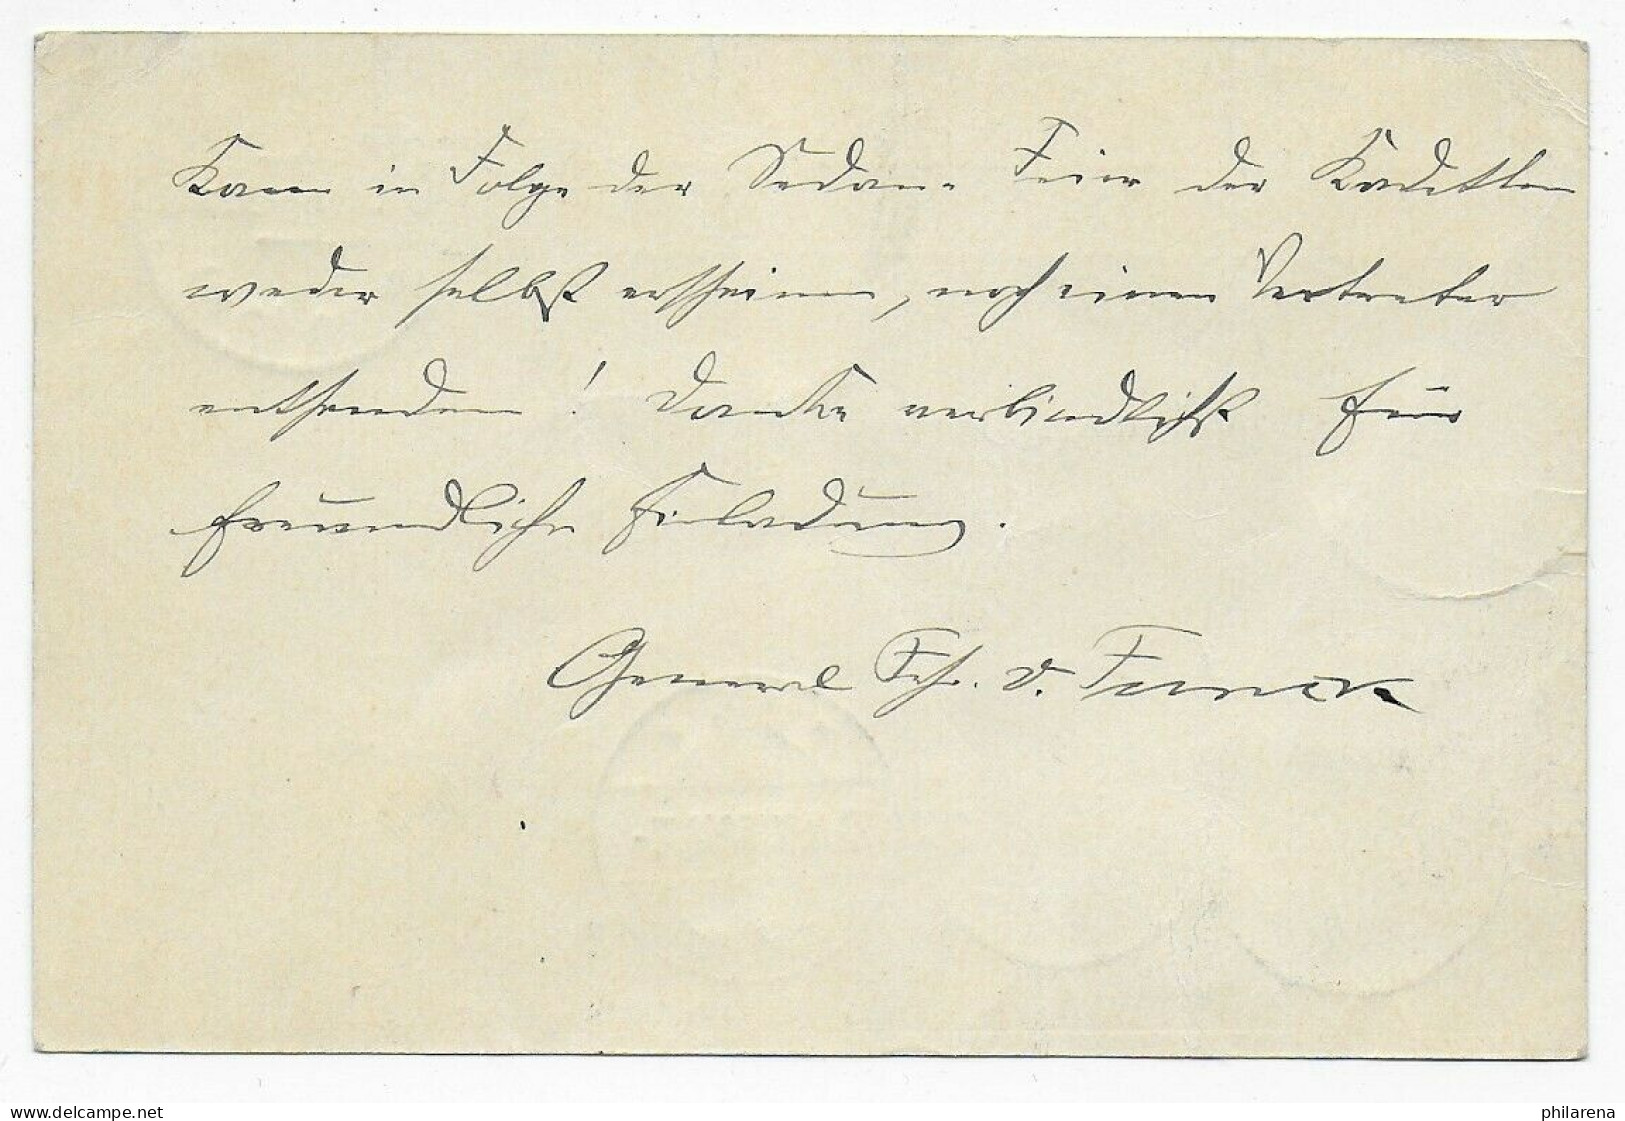 Kann in Folge der Sedan-Feier der Kadetten
weder selbst erscheinen, noch einen Vertreter
entsenden! Danke verbindlichst für
freundliche Einladung.
General Frh. v. Funck
philarena.com
philarena